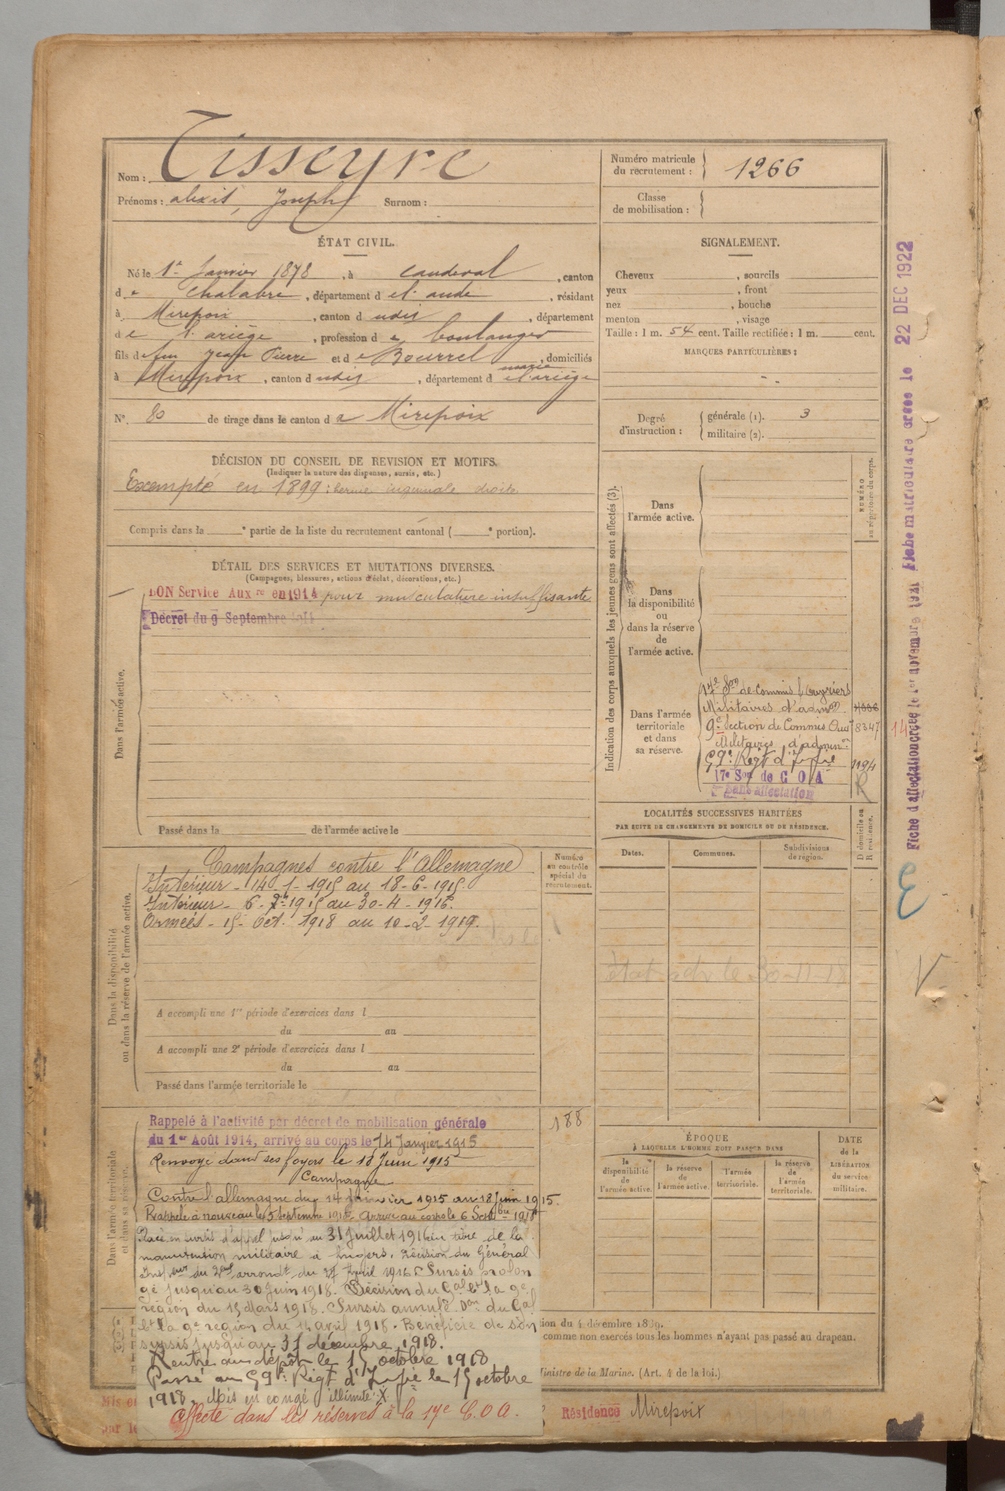 Nom : Tisseyre
Prénoms : alexis, Joseph Surnom :
Numéro matricule du recrutement : 1266
Classe de mobilisation :
ÉTAT CIVIL.
Né le 1er Janvier 1878, à Caudeval, canton
de Chalabre, département de l'aude, résidant
à Mirepoix, canton dudit, département
de l'ariège, profession de boulanger
fils de feu Jean Pierre et de Bourrel marie, domiciliés
à Mirepoix, canton dudit, département de l'ariège
N° 80 de tirage dans le canton de Mirepoix
SIGNALEMENT.
Cheveux , sourcils
yeux , front
nez , bouche
menton , visage
Taille : 1 m. 54 cent. Taille rectifiée : 1 m. cent.
MARQUES PARTICULIÈRES :
Degré d'instruction : générale (1). 3
militaire (2).
DÉCISION DU CONSEIL DE REVISION ET MOTIFS.
(Indiquer la nature des dispenses, sursis, etc.)
Exempté en 1899 : hernie inguinale droite
Compris dans la e partie de la liste du recrutement cantonal ( e portion).
DÉTAIL DES SERVICES ET MUTATIONS DIVERSES.
(Campagnes, blessures, actions d'éclat, décorations, etc.)
BON Service Auxre en 1914 pour musculature insuffisante
Décret du 9 Septembre 1914
Dans l'armée active.
Passé dans la de l'armée active le
Indication des corps auxquels les jeunes gens sont affectés (3).
NUMÉRO au répertoire du corps.
Dans l'armée active.
Dans la disponibilité ou dans la réserve de l'armée active.
Dans l'armée territoriale et dans sa réserve.
17e Son de Commis Ouvriers
Militaires d'admon
9e Section de Commis Ouv 8347
Militaires d'admon
59e Regt d'Infie 1194
17e Son de C O A
Sans affectation
R
Fiche d'affectation créée le 1er novembre 1921 Fiche matriculaire créée le 22 DEC 1922
LOCALITÉS SUCCESSIVES HABITÉES
PAR SUITE DE CHANGEMENTS DE DOMICILE OU DE RÉSIDENCE.
Dates. Communes. Subdivisions de région. D domicile ou R résidence.
Dans la disponibilité ou dans la réserve de l'armée active.
Numéro au contrôle spécial du recrutement.
Campagnes contre l'Allemagne
Intérieur - 14-1-1915 au 18-6-1915
Intérieur - 6-7bre 1915 au 30-4-1918
Armées - 15 Oct. 1918 au 10-2-1919.
A accompli une 1re période d'exercices dans l
du au
A accompli une 2e période d'exercices dans l
du au
Passé dans l'armée territoriale le
ÉPOQUE
À LAQUELLE L'HOMME DOIT PASSER DANS
la disponibilité de l'armée active. la réserve de l'armée active. l'armée territoriale. la réserve de l'armée territoriale.
DATE de la LIBÉRATION du service militaire.
Dans l'armée territoriale et dans sa réserve.
188
Rappelé à l'activité par décret de mobilisation générale
du 1er Août 1914, arrivé au corps le 14 Janvier 1915
Renvoyé dans ses foyers le 18 Juin 1915
Campagne
Contre l'allemagne du 14 janvier 1915 au 18 Juin 1915.
Rappelé à nouveau le 5 Septembre 1915 Arrivé au corps le 6 Septbre 1915
Placé en sursis d'appel jusqu'au 31 Juillet 1916 au titre de la
manutention militaire à Angers. Décision du Général
Inspeur du 2eme arrondt du 27 Avril 1916. Sursis prolon
gé jusqu'au 30 Juin 1918. Décision du Gal Ct la 9e
région du 15 Mars 1918. Sursis annulé Don du Gal
Ct la 9e région du avril 1918. Bénéficie de son
sursis jusqu'au 31 décembre 1918.
Rentré au dépôt le 15 octobre 1918
Passé au 59e Régt d'Infie le 15 octobre
1918. Mis en congé illimité X
Affecté dans les réserves à la 17e C.O.A.
tion du 4 décembre 1889.
comme non exercés tous les hommes n'ayant pas passé au drapeau.
Ministre de la Marine. (Art. 4 de la loi.)
Résidence Mirepoix